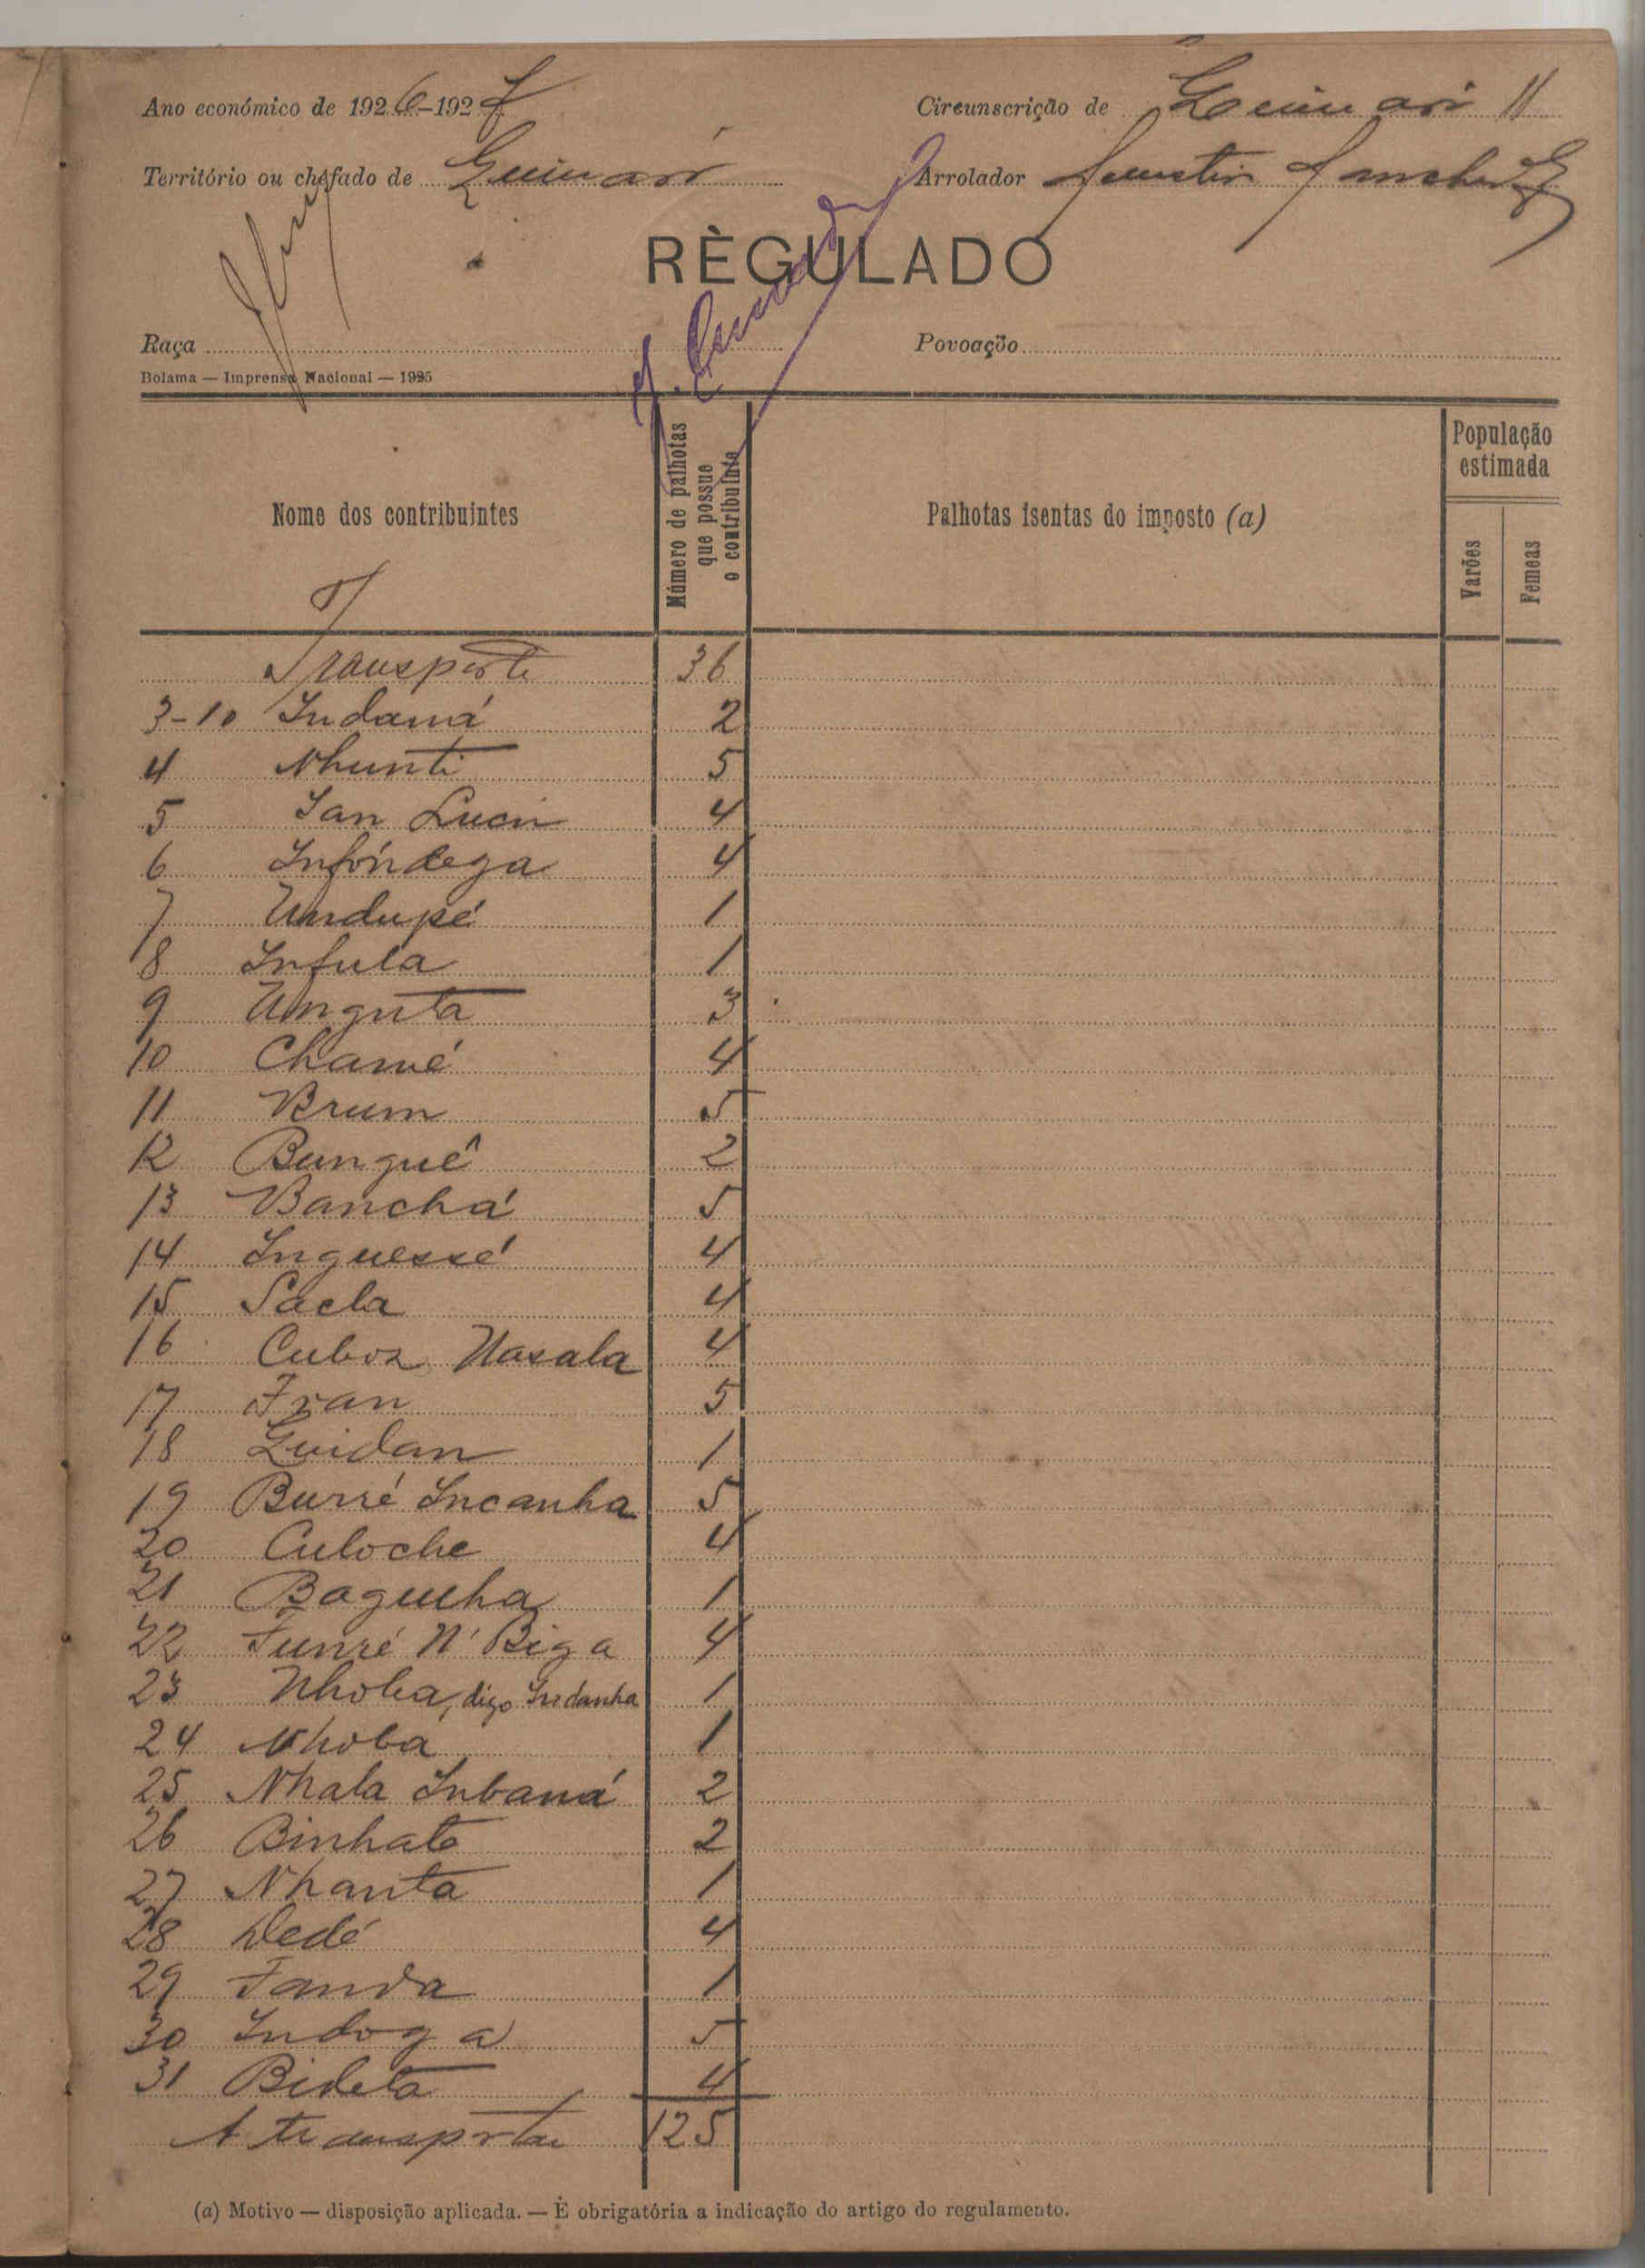 Ano económico de 1926-1927
Circunscrição de Quinari 11
Território ou chefado de Quinari
Arrolador
RÈGULADO
Raça
Povoação
Bolama — Imprensa Nacional — 1925
Nome dos contribuintes
Número de palhotas que possue o contribuinte
Palhotas isentas do imposto (a)
População estimada
Varões
Femeas
Transporte 36
3-10 Indamá 2
4 Nhunti 5
5 Ian Lucin 4
6 Infóndega 4
7 Undupé 1
8 Infula 1
9 Unguta 3
10 Chamé 4
11 Brum 5
12 Bunguê 2
13 Banchá 5
14 Inguessé 4
15 Sacla 4
16 Cuboz Nasala 4
17 Fran 5
18 Quidan 1
19 Burré Incanha 5
20 Culoche 4
21 Baguilha 1
22 Funré N'Biga 4
23 Nhoba, digo Indanha 1
24 Nhoba 1
25 Nhala Inbaná 2
26 Binhate 2
27 Nhanta 1
28 Dedé 4
29 Fanda 1
30 Indoga 5
31 Bideta 4
A transportar 125
(a) Motivo — disposição aplicada. — È obrigatória a indicação do artigo do regulamento.